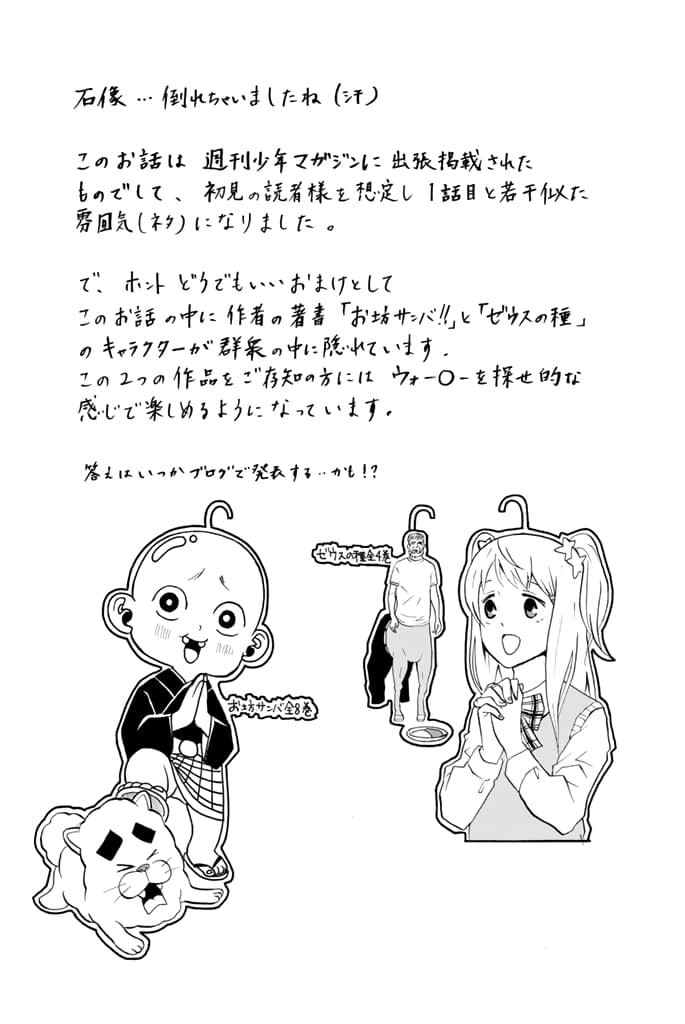 石像…倒れちゃいましたね(汗)
このお話は 週刊少年マガジンに出張掲載された
ものでして、初見の読者様を想定し1話目と若干似た
雰囲気(ネタ)になりました。
で、ホントどうでもいいおまけとして
このお話の中に作者の著書「お坊サンバ!!」と「ゼウスの種」
のキャラクターが群衆の中に隠れています.
この2つの作品をご存知の方には ウォー〇ーを探せ的な
感じで楽しめるようになっています。
答えはいつかブログで発表する‥かも!?
ゼウスの種全4巻
お坊サンバ全8巻